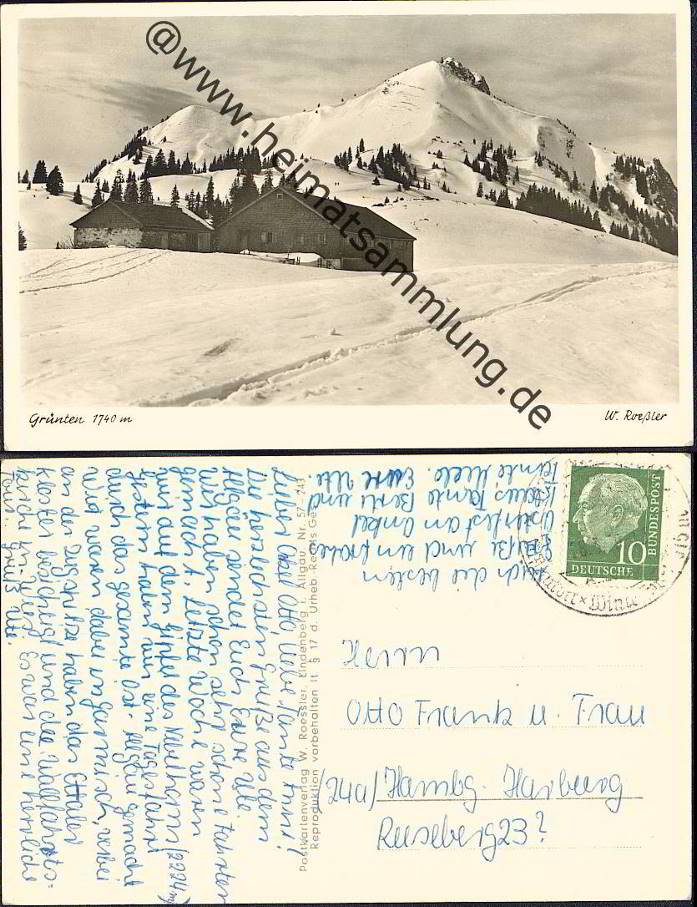 @www.heimatsammlung.de
Grünten 1740 m
W. Roeßler
Lieber Onkel Otto, liebe Tante Anni!
Die herzlichsten Grüße aus dem
Allgäu sendet Euch Eure Ute.
Wir haben schon sehr schöne Fahrten
gemacht. Letzte Woche waren
wir auf dem Gipfel des Nebelhorns (2224 m)
Gestern haben wir eine Tagesfahrt
durch das gesamte Ost-Allgäu gemacht
Wir waren dabei in Garmisch, vorbei
an der Zugspitze haben das Ettaler
Kloster besichtigt und die Wallfahrts-
kirche in der Wies. Es war eine herrliche
Tour. Gruß Ute.
Auch die besten
Grüße und ein frohes
Osterfest an Onkel
Klaus Tante Berti und
Tante Miele. Eure Ute.
Postkartenverlag W. Roessler, Lindenberg i. Allgäu. Nr. 57-243
Reproduktion vorbehalten lt. § 17 d. Urheb. Rechts Ges.
10
DEUTSCHE
BUNDESPOST
Herrn
Otto Frank u. Frau
/24a/ Hambg. Harburg
Reeseberg 23?